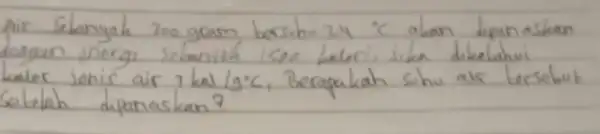 Air Sebanyak 200 gram bersuhu 24 °C akan dipanaskan
dengan energi Sebanyak 1500 kalori, jika diketahui
kalor jenis air 1 kal/g°C, Berapakah suhu air tersebut
Setelah dipanaskan?